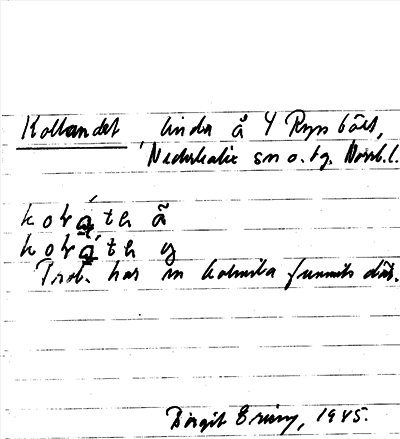 Kollandet, linda å Y Ryssbält,
Nederkalix sn o. tg. Norrb. l.
kolạ́th ã
kolạ́th y
Trol. har en kolmila funnits där.
Birgit Ering, 1945.